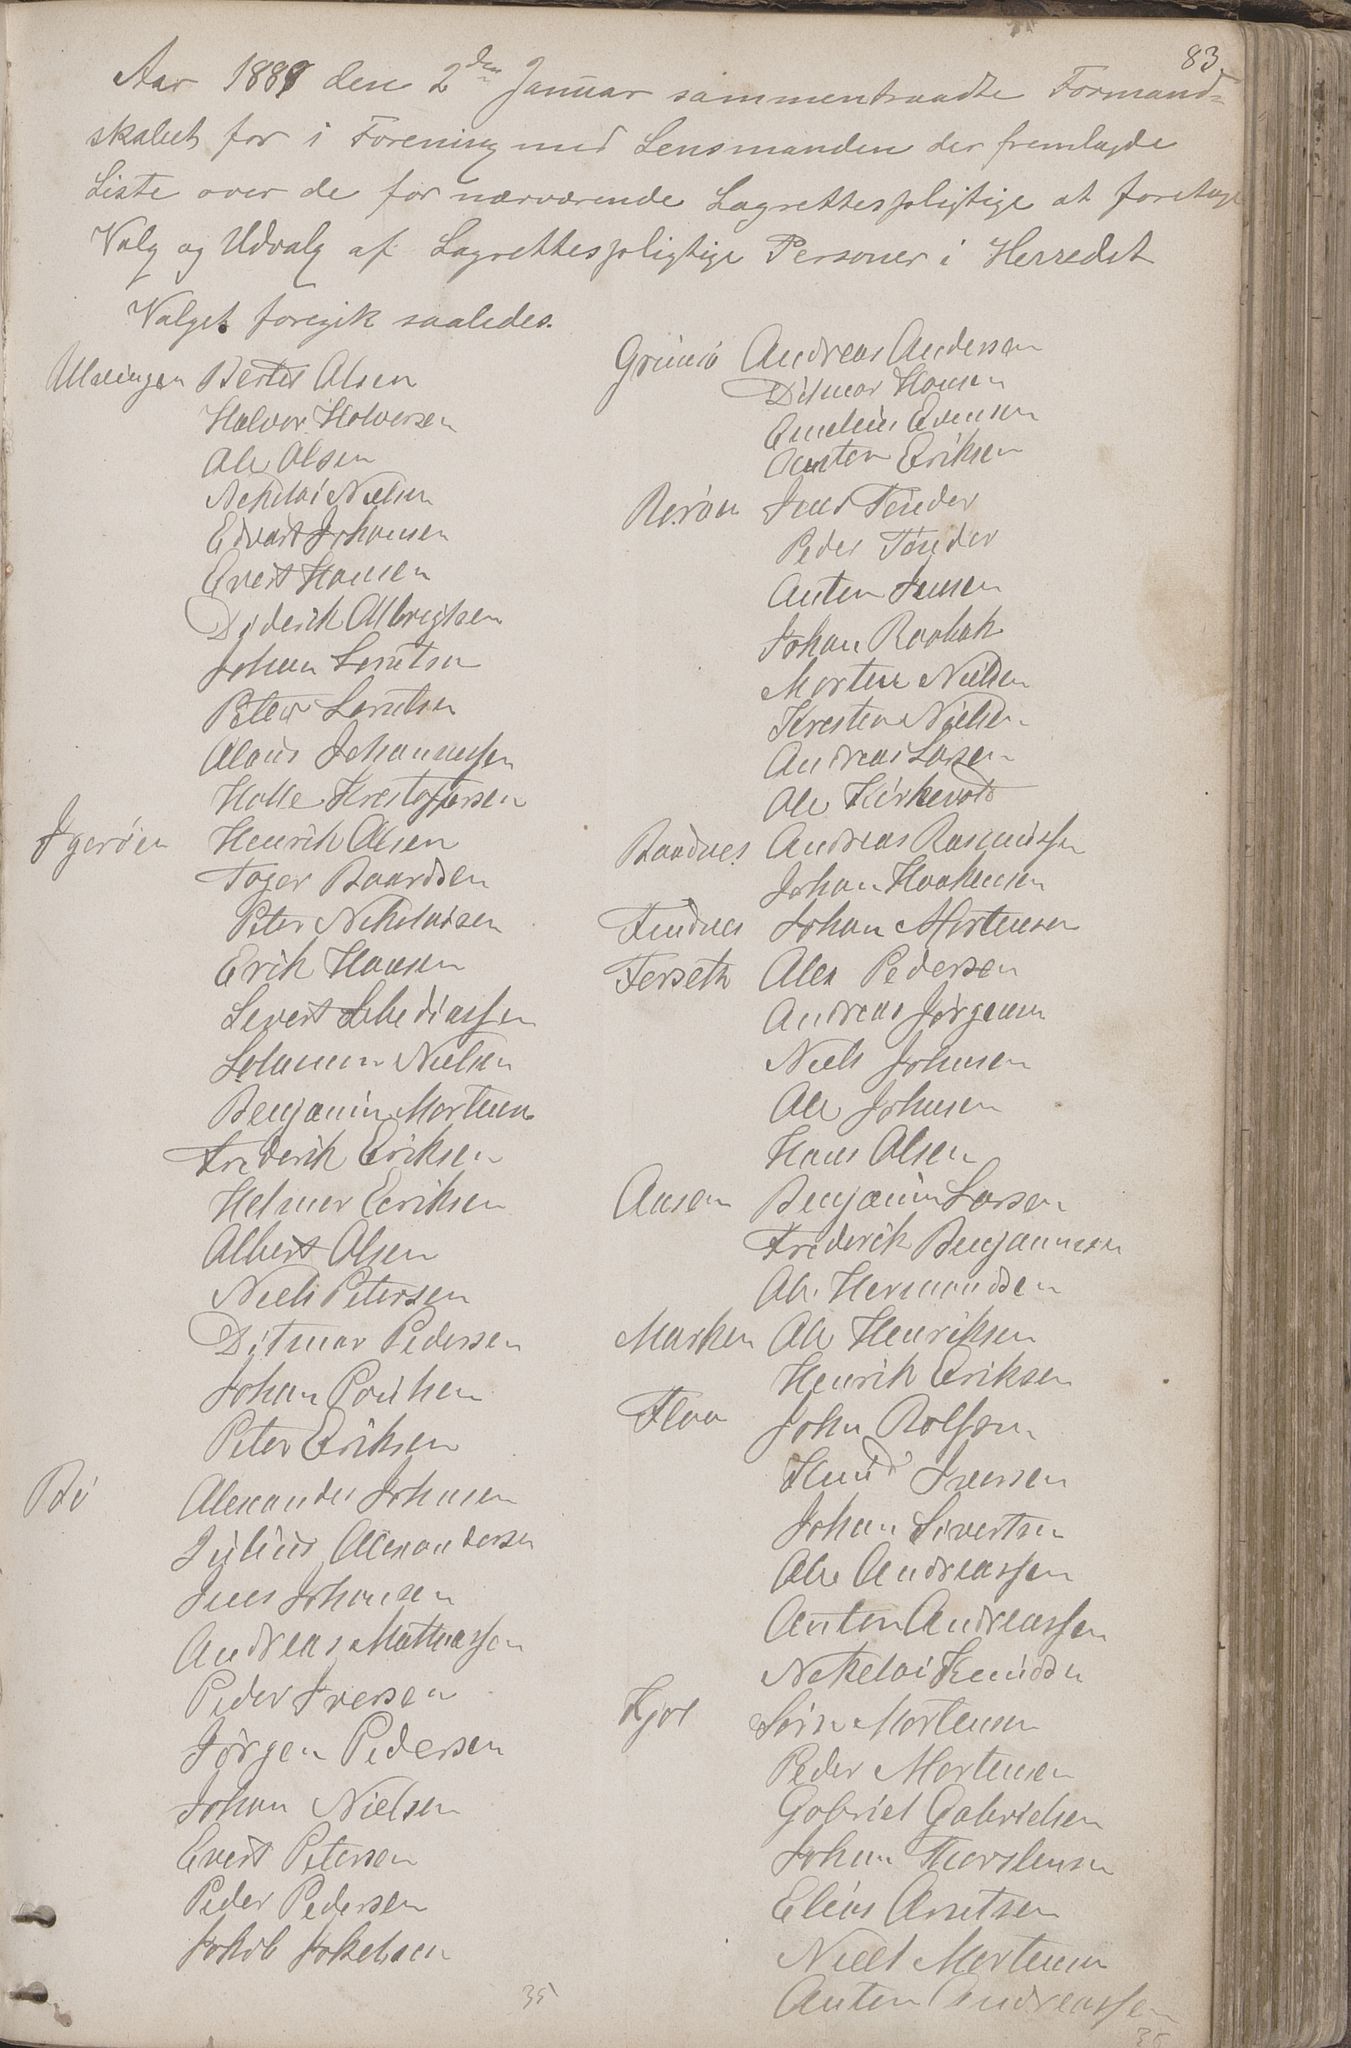 83
Aar 1889 den 2den Januar sammentraadte Formand-
skabet for i Forening med Lensmanden der fremlagde
Liste over de for nærværende Lagrettespligtige at foretage
Valg og Udvalg af Lagrettespligtige Personer i Herredet
Valget foregik saaledes.
Bertes Olsen
Halvor Halvorsen
Ole Olsen
Nekolai Nielsen
Edvart Johansen
Evert Hansen
Diderik Albrigtsen
Johan Lorntsen
Peter Lorntsen
Olaus Johannessen
Holle Krestoffersen
Igerøen Henrik Olsen
Toger Baardsen
Peter Nekolaisen
Erik Hansen
Severt Sebediassen
Solamon Nielsen
Benjamin Mortensen
Frederik Eriksen
Helmer Eeriksen
Albert Olsen
Niels Petersen
Ditmar Pedersen
Johan
Peter Eriksen
Bø Alexander Johnsen
Julius Alexandersen
Jens Johansen
Andreas Mathiassen
Peder Iversen
Jørgen Pedersen
Johan Nielsen
Evert Petersen
Peder Pedersen
Jakob Jakobsen
35
Andreas Andersen
Ditmar Hansen
Emelius Evensen
Anton Eriksen
Rørøen Jens Tønder
Peder Tønder
Anton Jensen
Johan Raabak
Morten Nielsen
Kresten Nielsen
Andreas Larsen
Ole Kirkevold
Baadnes Andreas Rasmussen
Johan Haakensen
Findnes Johan Mortensen
Ferseth Alex Pedersen
Andreas Jørgensen
Niels Johnsen
Ole Johnsen
Hans Olsen
Ausen Benjamin Larsen
Frederik Benjaminsen
Ole Hermandsen
Marken Ole Henriksen
Henrik Eriksen
Floa John Rolfsen
Knud Iversen
Johan Sivertsen
Ole Andreassen
Anton Andreassen
Nekolai Knudsen
Søren Mortensen
Peder Mortensen
Gabriel Gabrielsen
Johan Thorstensen
Elias Arntsen
Niels Mortensen
Anton Andreassen
35